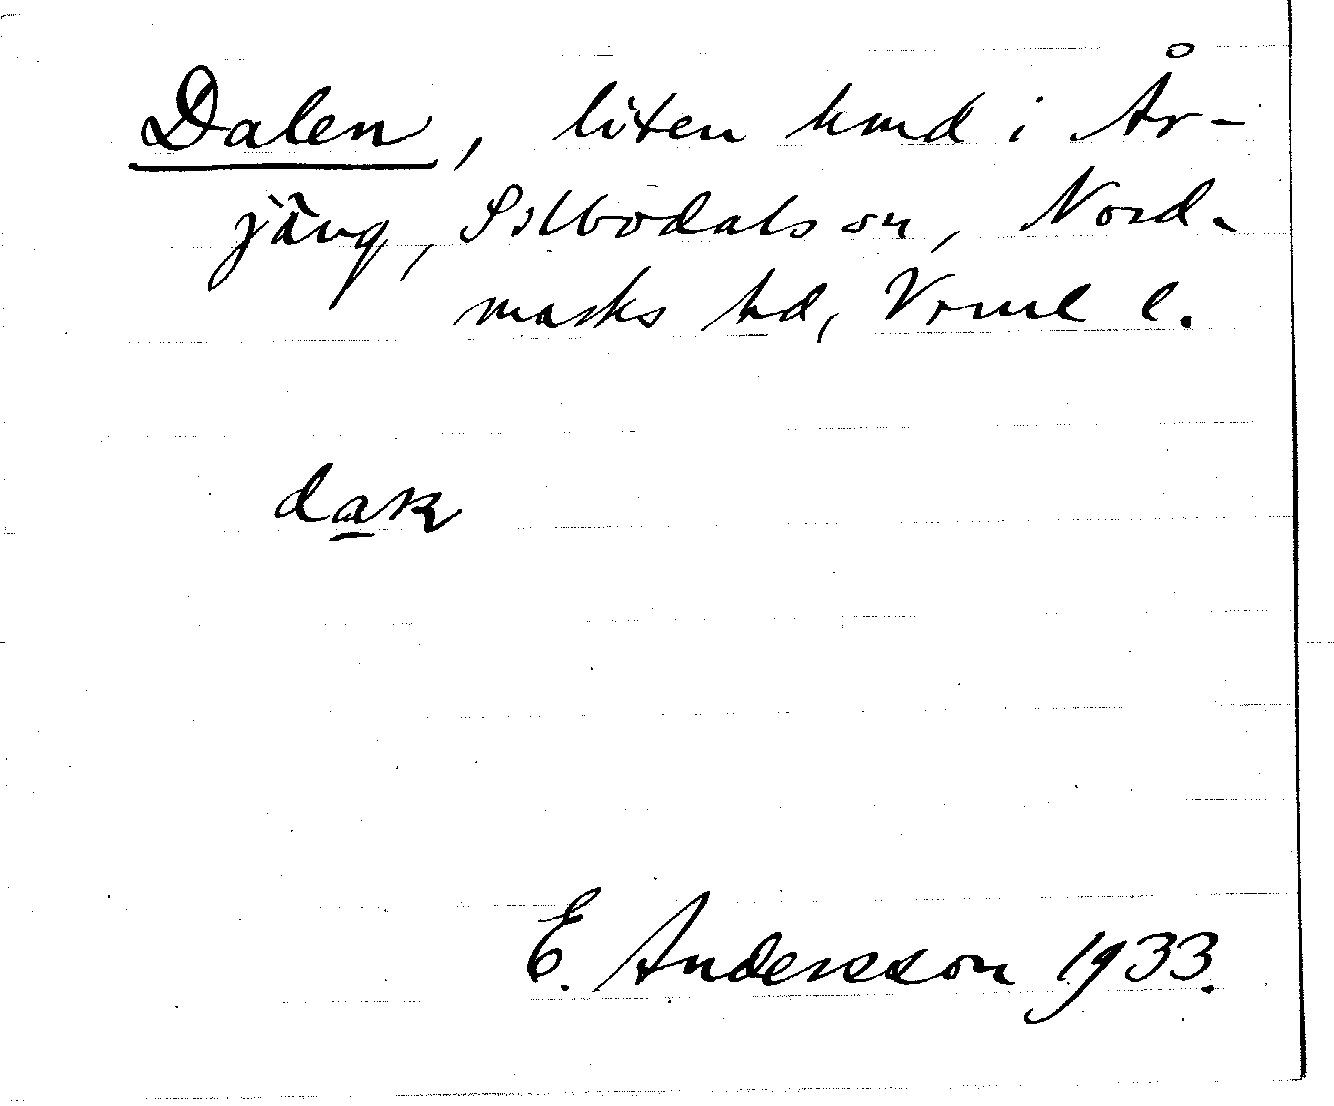 Dalen, liten hmd i År-
jäng, Silbodals sn, Nord-
marks hd, Vrml l.
dak
E. Andersson 1933.